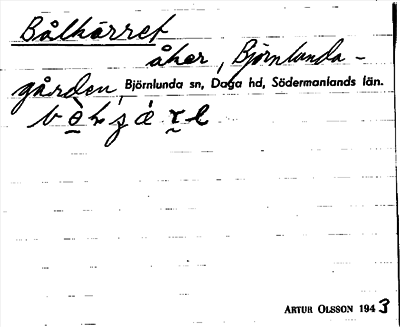 Bålhärret
åker, Björnlunda-
gården, Björnlunda sn, Daga hd, Södermanlands län.
ARTUR OLSSON 1943